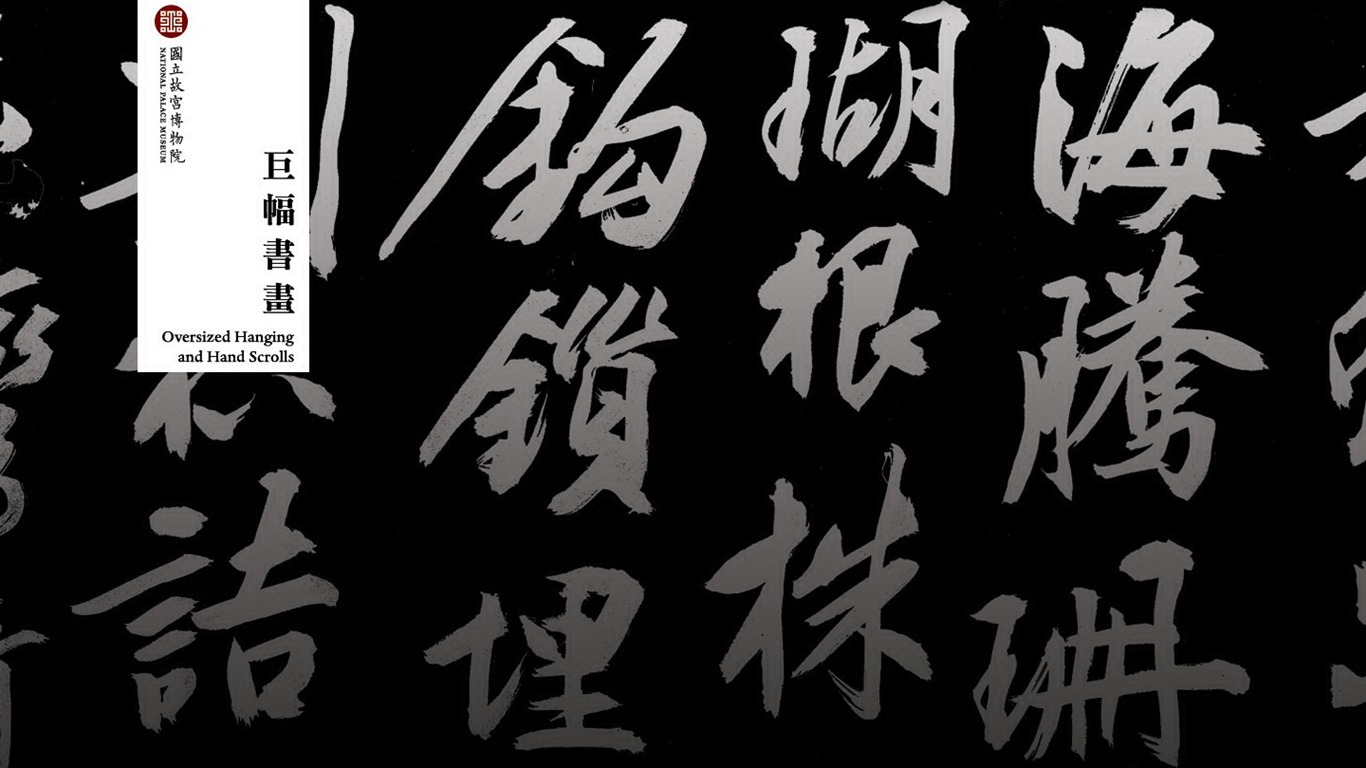 國立故宮博物院
NATIONAL PALACE MUSEUM
巨幅書畫
Oversized Hanging
and Hand Scrolls
海騰珊
瑚根株
鈎鎖埋
詰